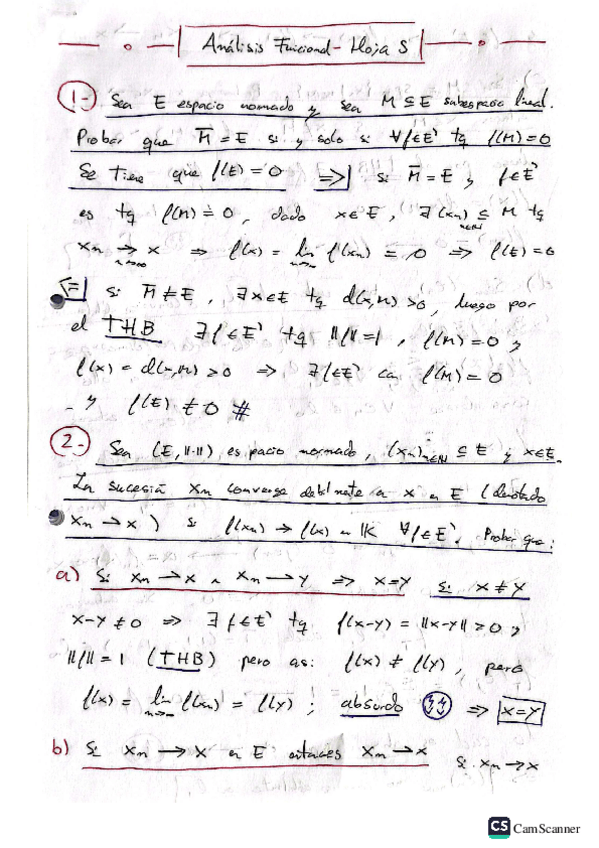 Análisis Funcional - Hoja 5
1- Sea E espacio normado y sea M ⊆ E subespacio lineal.
Probar que M̅ = E si y solo si ∀f∈E' tq f(M)=0
Se tiene que f(E)=0 ⇒| si M̅ = E y f∈E'
es tq f(M)=0, dado x∈E, ∃(xn)n∈ℕ ⊆ M tq
xn →n→∞ x ⇒ f(x) = lim n→∞ f(xn) = 0 ⇒ f(E)=0
⇐| si M̅ ≠ E, ∃x∈E tq d(x,M)>0, luego por
el THB ∃f∈E' tq ||f||=1, f(M)=0 y
f(x) = d(x,M) > 0 ⇒ ∃f∈E' con f(M)=0
y f(E) ≠ 0 #
2- Sea (E,||·||) espacio normado, (xn)n∈ℕ ⊆ E y x∈E.
La sucesión xn converge debilmente a x en E (denotado
xn ⇀ x) si f(xn) → f(x) en K ∀f∈E'. Probar que:
a) Si xn ⇀ x ∧ xn ⇀ y ⇒ x=y si x≠y
x-y ≠ 0 ⇒ ∃f∈E' tq f(x-y) = ||x-y|| > 0 y
||f|| = 1 (THB) pero así f(x) ≠ f(y), pero
f(x) = lim n→∞ f(xn) = f(y); absurdo ⇒ x=y
b) Si xn → x en E entonces xn ⇀ x si xn → x
CS CamScanner